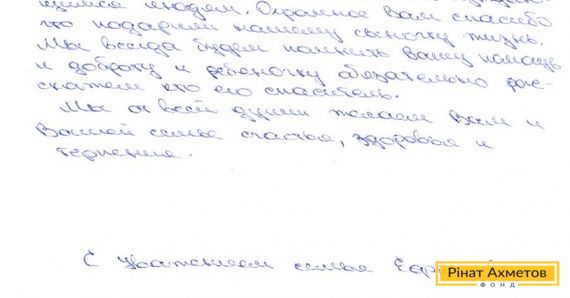 людям. Огромное Вам спасибо
что подарили нашему сыночку жизнь.
Мы всегда будем помнить вашу помощь
и доброту и ребеночку обязательно рас-
скажем кто его спаситель.
Мы от всей души желаем Вам и
Вашей семье счастья, здоровья и
терпения.
С уважением семья
Рінат Ахметов
ФОНД